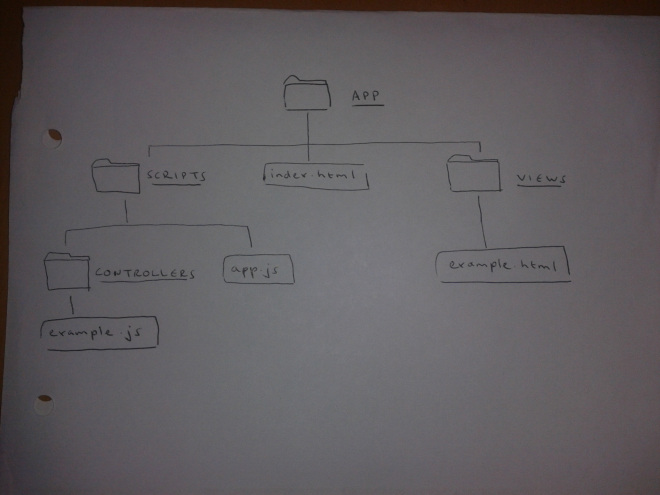 APP
SCRIPTS
index.html
VIEWS
CONTROLLERS
app.js
example.html
example.js